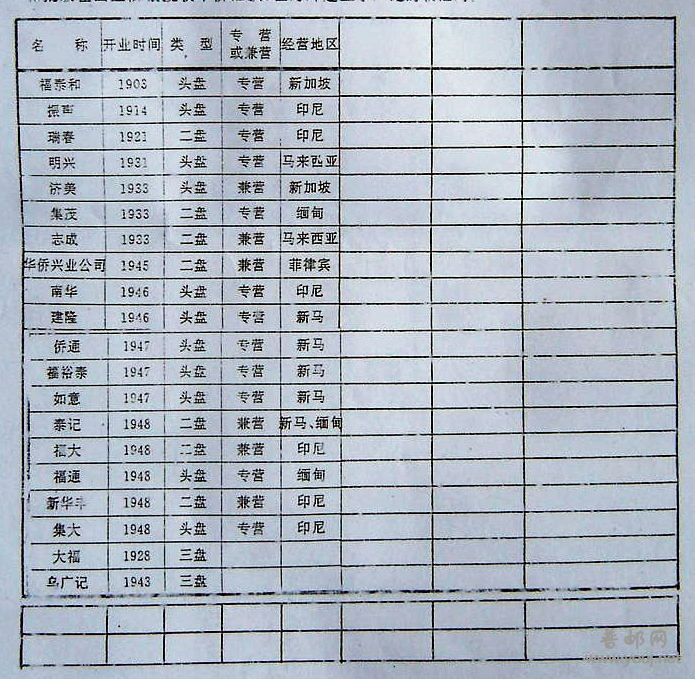 名 称 开业时间 类 型 专 营 或兼营 经营地区
福泰和 1903 头盘 专营 新加坡
振声 1914 头盘 专营 印尼
瑞春 1921 二盘 专营 印尼
明兴 1931 头盘 专营 马来西亚
济美 1933 头盘 兼营 新加坡
集茂 1933 二盘 专营 缅甸
志成 1933 二盘 兼营 马来西亚
华侨兴业公司 1945 二盘 兼营 菲律宾
南华 1946 头盘 专营 印尼
建隆 1946 头盘 专营 新马
侨通 1947 头盘 专营 新马
福裕泰 1947 头盘 专营 新马
如意 1947 头盘 专营 新马
泰记 1948 二盘 兼营 新马、缅甸
福大 1948 二盘 兼营 印尼
福通 1948 头盘 专营 缅甸
新华丰 1948 二盘 兼营 印尼
集大 1948 头盘 专营 印尼
大福 1928 三盘
乌广记 1943 三盘
普邮网